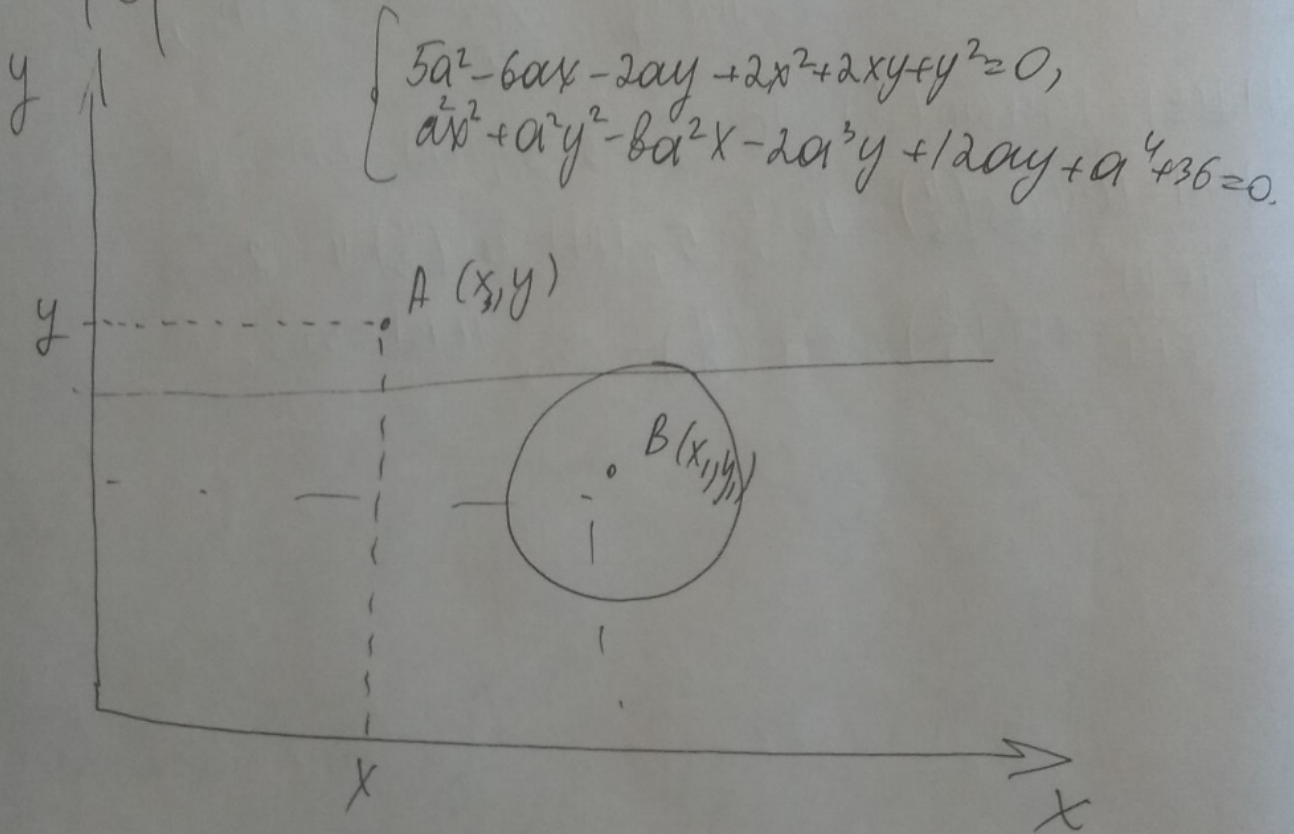 y
5a²-6ax-2ay+2x²+2xy+y²=0,
a²x²+a²y²-8a²x-2a³y+12ay+a⁴+36=0.
A (x,y)
y
B (x₁,y₁)
x
x